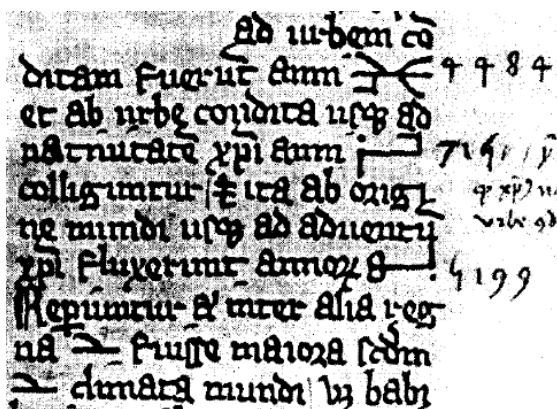 ad urbem cō
ditam fuerūt anni 4484
et ab urbe condita usqꝫ ad
natiuitatē xp̄i anni 715
colliguntur ita ab origi
ne mundi usqꝫ ad aduentū
xp̄i fluxerunt annoꝝ 5199
Rep̄iuntur inter alia reg
na fuisse maiora scdm
climata mundi vꝫ babi